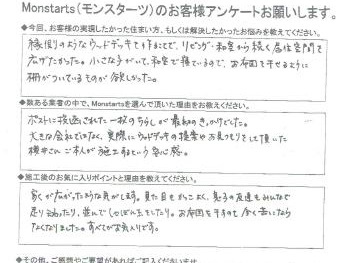 Monstarts(モンスターツ)のお客様アンケートお願いします。
◆今回、お客様の実現したかった住まい方、もしくは解決したかったお悩みを教えてください。
縁側のようなウッドデッキを作ることで、リビング・和室から続く居住空間を
広げたかった。小さな子がいて、和室で寝ているので、お布団を干せるように
柵がついているものが欲しかった。
◆数ある業者の中で、Monstartsを選んで頂いた理由をお教えください。
ポストに投函された一枚のちらしが最初のきっかけでした。
大きな会社ではなく、実際にウッドデッキの提案やお見つもりをして頂いた
横井さんご本人が施工するという安心感。
◆施工後のお気に入りポイントと理由を教えてください。
家が広がったような気がします。見た目もかっこよく、息子の友達もみんなで
走り回ったり、並んでしゃぼん玉をしたり。お布団を干すのも全く苦にならな
くなりました。すべてがお気入りです。
◆その他、ご感想やご要望があればご記入くださいませ。